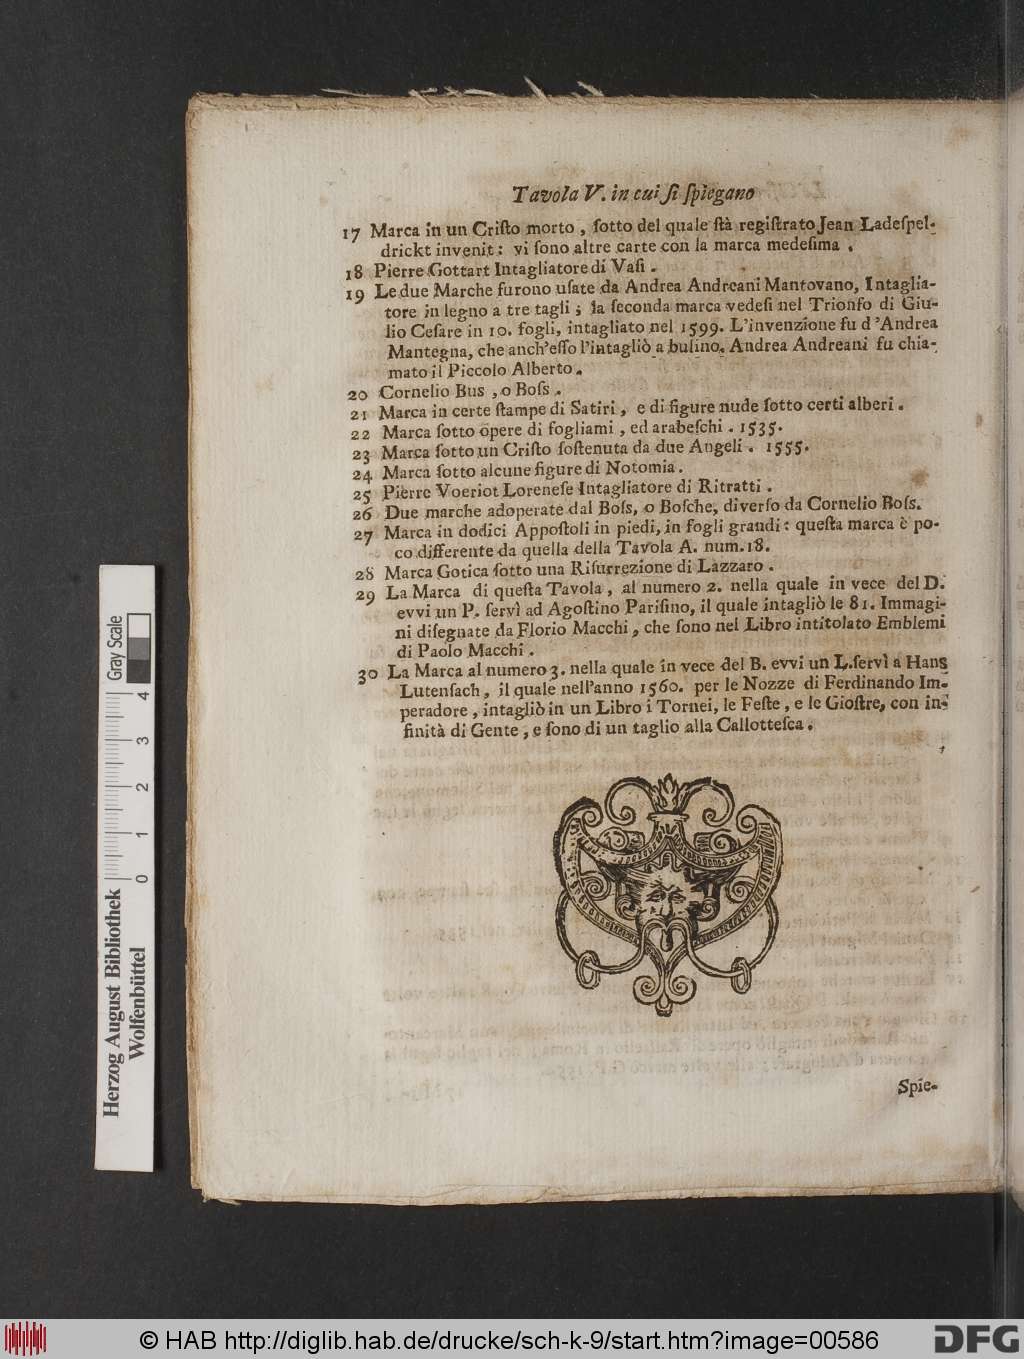 Tavola V. in cui ſi ſpiegano
17 Marca in un Criſto morto, ſotto del quale ſtà regiſtrato Jean Ladeſpel-
drickt invenit: vi ſono altre carte con la marca medeſima.
18 Pierre Gottart Intagliatore di Vaſi.
19 Le due Marche furono uſate da Andrea Andreani Mantovano, Intaglia-
tore in legno a tre tagli; la ſeconda marca vedeſi nel Trionfo di Giu-
lio Ceſare in 10. fogli, intagliato nel 1599. L'invenzione fu d'Andrea
Mantegna, che anch'eſſo l'intagliò a bulino. Andrea Andreani fu chia-
mato il Piccolo Alberto.
20 Cornelio Bus, o Boſs.
21 Marca in certe ſtampe di Satiri, e di figure nude ſotto certi alberi.
22 Marca ſotto opere di fogliami, ed arabeſchi. 1535.
23 Marca ſotto un Criſto ſoſtenuta da due Angeli. 1555.
24 Marca ſotto alcune figure di Notomia.
25 Pierre Voeriot Loreneſe Intagliatore di Ritratti.
26 Due marche adoperate dal Boſs, o Boſche, diverſo da Cornelio Boſs.
27 Marca in dodici Appoſtoli in piedi, in fogli grandi: queſta marca è po-
co differente da quella della Tavola A. num. 18.
28 Marca Gotica ſotto una Riſurrezione di Lazzaro.
29 La Marca di queſta Tavola, al numero 2. nella quale in vece del D.
evvi un P. ſervì ad Agoſtino Pariſino, il quale intagliò le 81. Immagi-
ni diſegnate da Florio Macchi, che ſono nel Libro intitolato Emblemi
di Paolo Macchi.
30 La Marca al numero 3. nella quale in vece del B. evvi un L. ſervì a Hans
Lutenſach, il quale nell'anno 1560. per le Nozze di Ferdinando Im-
peradore, intagliò in un Libro i Tornei, le Feſte, e le Gioſtre, con in-
finità di Gente, e ſono di un taglio alla Callotteſca.
Spie-
Gray Scale
4 3 2 1 0
Herzog August Bibliothek
Wolfenbüttel
© HAB http://diglib.hab.de/drucke/sch-k-9/start.htm?image=00586
DFG